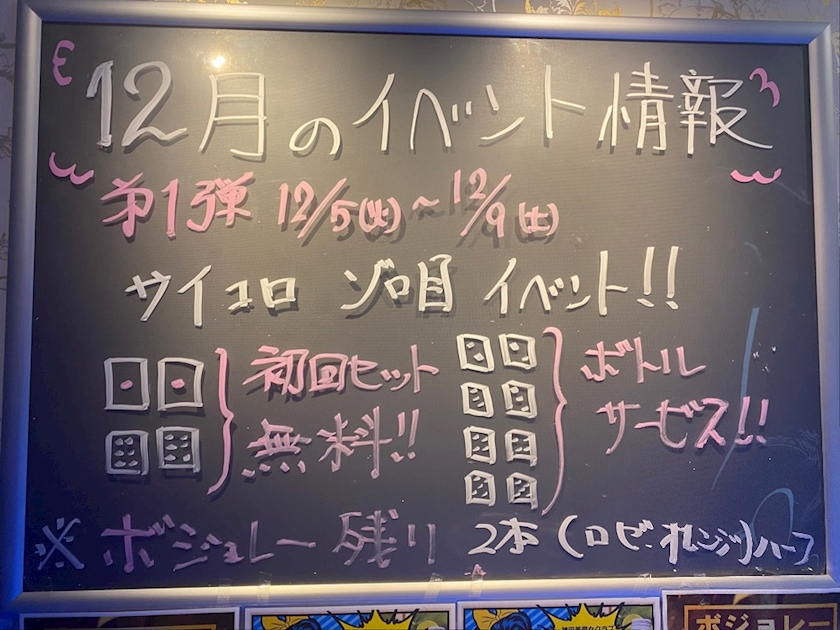 12月のイベント情報
第1弾 12/5(火)~12/9(土)
サイコロ ゾロ目 イベント!!
初回セット
無料!!
ボトル
サービス!!
※ ボジョレー 残り 2本 (ロゼ・オレンジ)ハーフ
ボジョレー